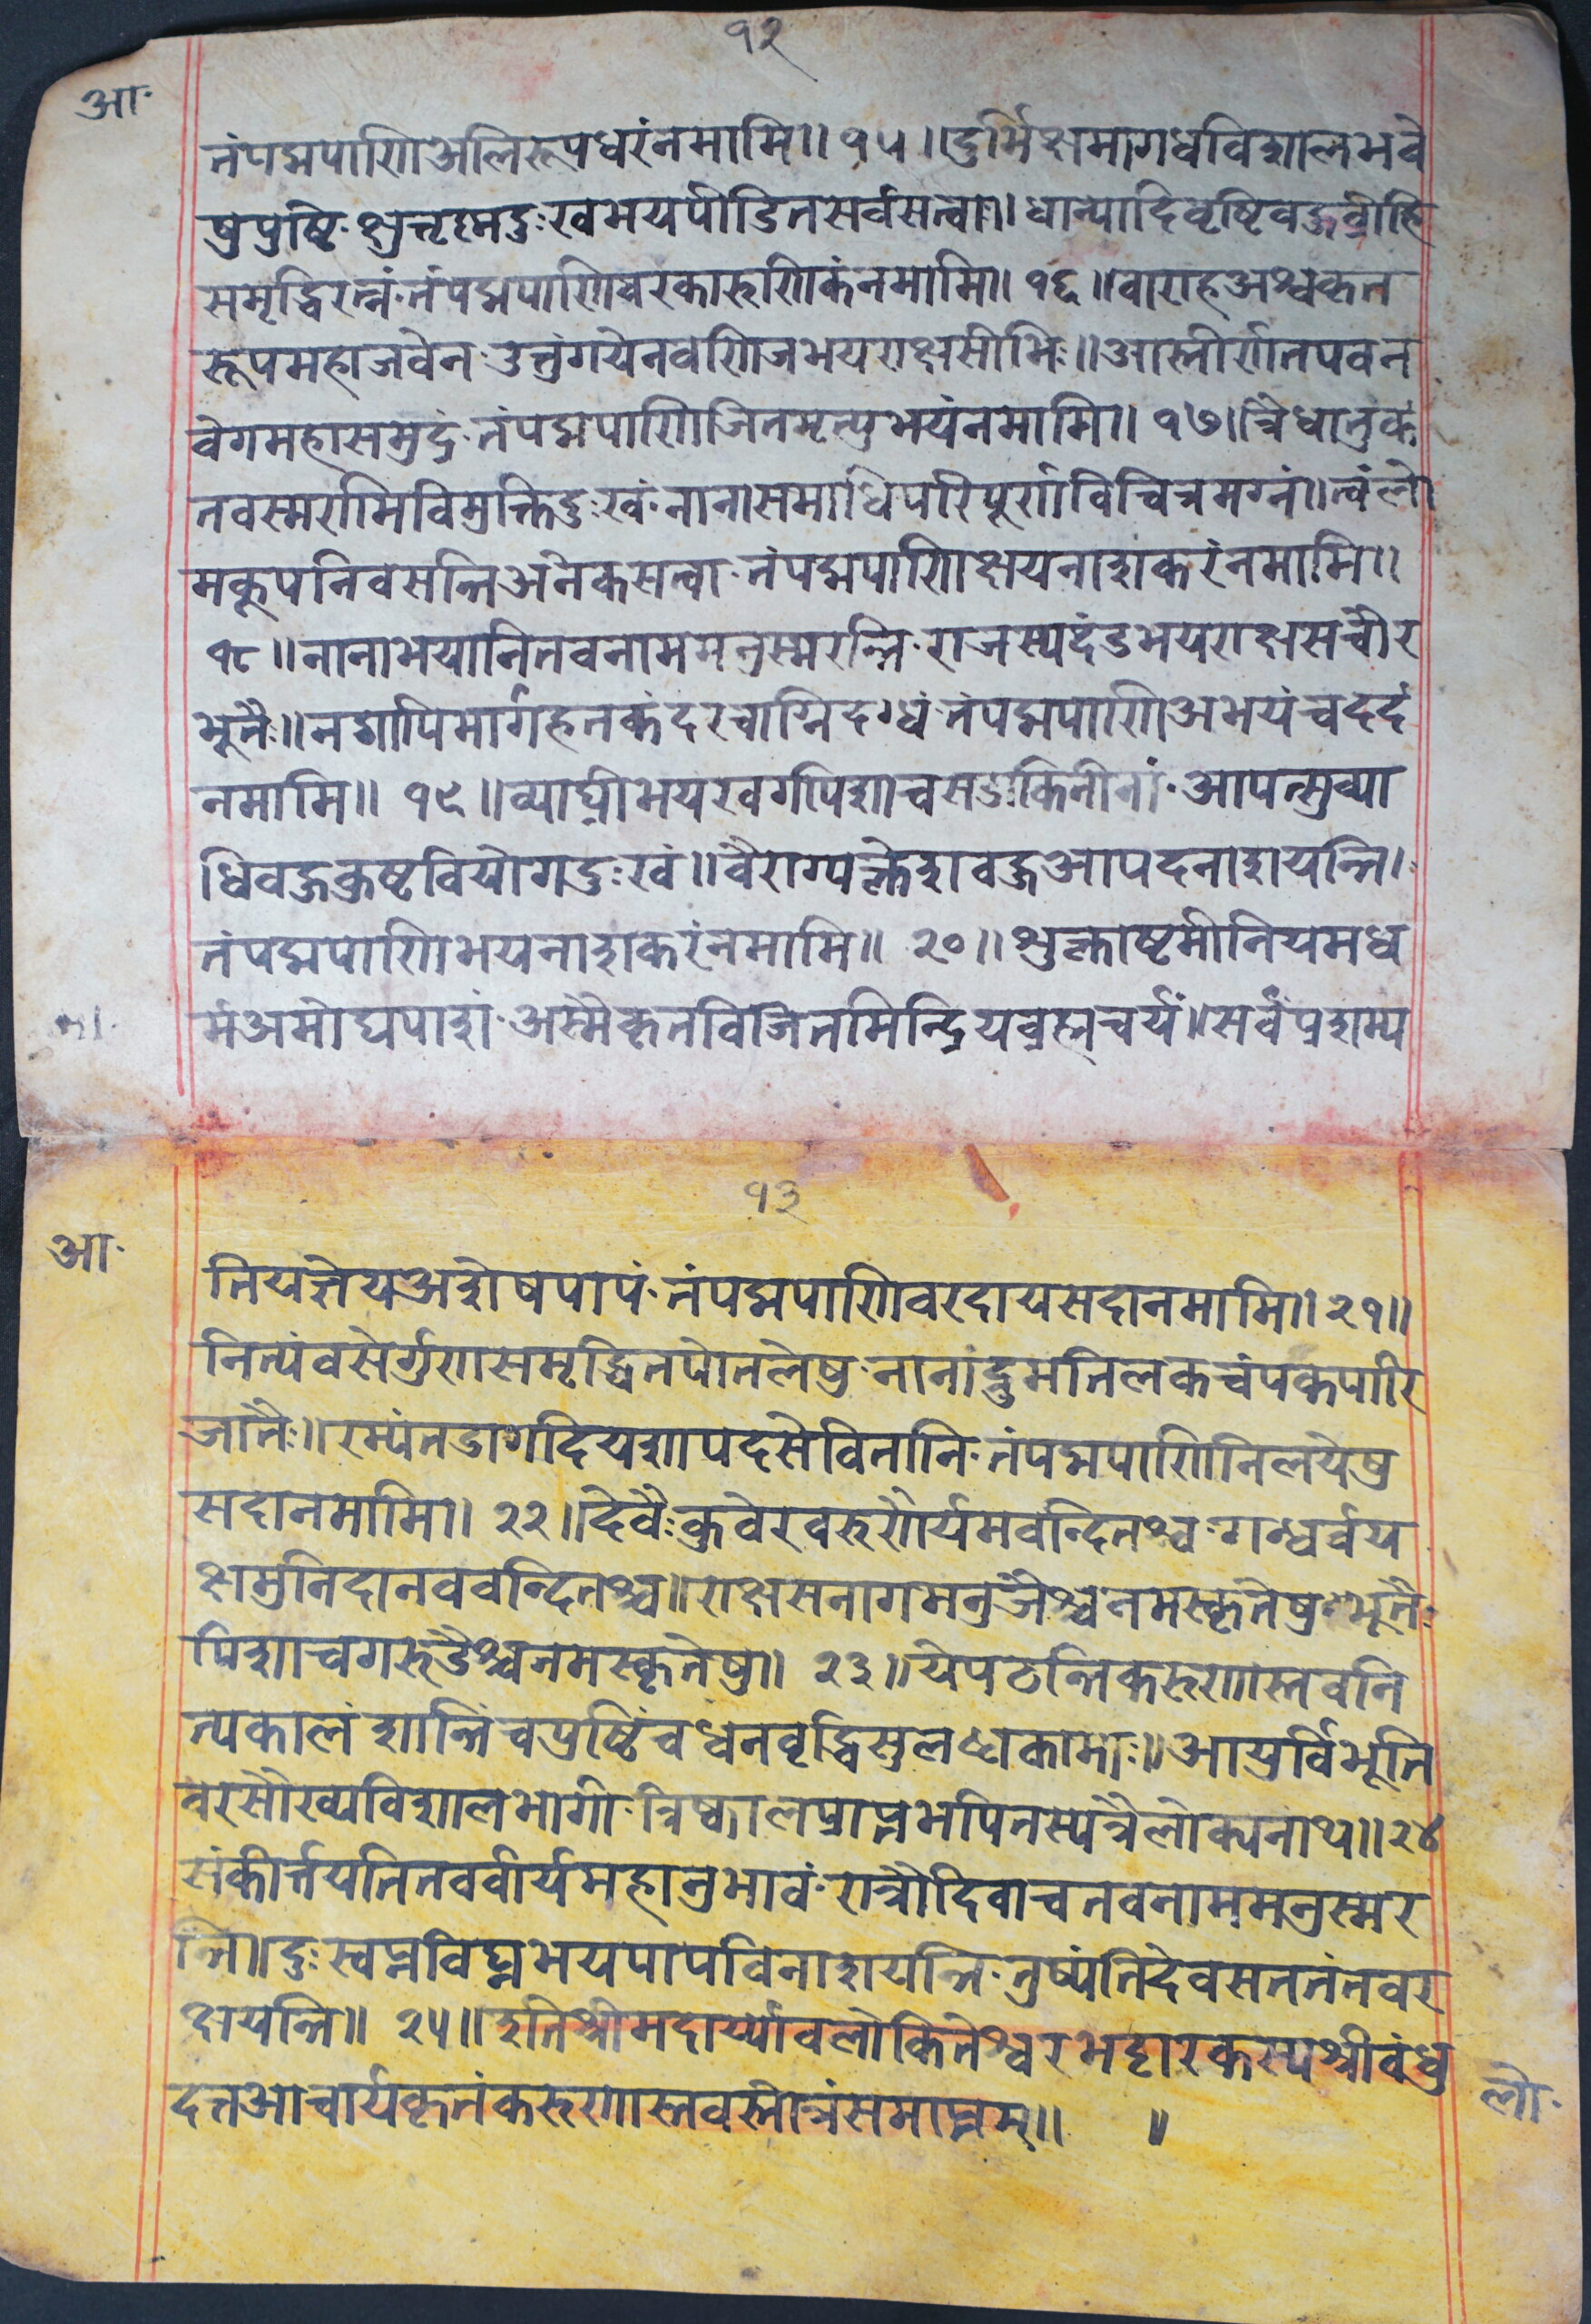 १२
आ॰
तंपद्मपाणिअलिरूपधरंनमामि॥१५॥दुर्भिक्षमागधविशालभवे
षुपुष्टि॰क्षुत्तृष्मदुःखभयपीडितसर्वसत्वा॥धान्यादिवृष्टिवज्रव्रीहि
समृद्धिरत्नं॰तंपद्मपाणिवरकारुणिकंनमामि॥१६॥वाराहअश्वकृत
रूपमहाजवेन॰उत्तुंगयेनवणिजभयराक्षसीभिः॥आस्तीर्णातपवन
वेगमहासमुद्रं॰तंपद्मपाणिजितमृत्युभयंनमामि॥१७॥त्रैधातुकं
तवस्मरामिविमुक्तिदुःखं॰नानासमाधिपरिपूर्णविचित्रमग्नं॥त्वंलो
मकूपनिवसन्तिअनेकसत्वा॰तंपद्मपाणिक्षयनाशकरंनमामि॥
१८॥नानाभयानितवनाममनुस्मरन्ति॰राजस्यदंडभयराक्षसचौर
भूतैः॥नशापिमार्गहनकंदरचाग्निदग्धं॰तंपद्मपाणिअभयंचददं
नमामि॥१९॥व्याघ्रीभयखर्गपिशाचसडाकिनीनां॰आपत्सुव्या
धिवज्रकष्टवियोगदुःखं॥वैराग्यक्लेशवज्रआपदनाशयन्ति।
तंपद्मपाणिभयनाशकरंनमामि॥२०॥शुक्लाष्टमीनियमध
र्मअमोघपाशं॰अस्मैकृतविजितमिन्द्रियब्रह्मचर्यं॥सर्वंप्रशम्य
१३
आ॰
तियत्तेयअशेषपापं॰तंपद्मपाणिवरदायसदानमामि॥२१॥
नित्यंवसेर्गुणसमृद्धितपोतलेषु॰नानांद्रुमतिलकचंपकपारि
जातैः॥रम्यंतडागदियशापदसेवितानि॰तंपद्मपाणिनिलयेषु
सदानमामि॥२२॥देवैःकुवेरवरुणैार्यमवन्दितश्च॰गन्धर्वय
क्षमुनिदानववन्दितश्च॥राक्षसनागमनुजैश्चनमस्कृतेषु॰भूतैः
पिशाचगरुडैश्चनमस्कृतेषु॥२३॥येपठन्तिकरुणास्तवनि
त्यकालंशान्तिंचपुष्टिंचधनवृद्धिसुलब्धकामाः॥आयुर्विभूति
वरसौख्यविशालभागी॰त्रिष्कालप्राप्तमपितस्यत्रैलोक्यनाथ॥२४
संकीर्त्तयतितववीर्यमहानुभावं॰रात्रौदिवाचतवनाममनुस्मर
न्ति॥दुःस्वप्नविघ्नभयपापविनाशयन्ति॰तुष्यंतिदेवसततंतवर
क्षयन्ति॥२५॥इतिश्रीमदार्य्यावलोकितेश्वरभट्टारकस्यश्रीवंधु
दत्तआचार्यकृतंकरुणास्तवस्तोत्रंसमाप्तम्॥॥
लो॰